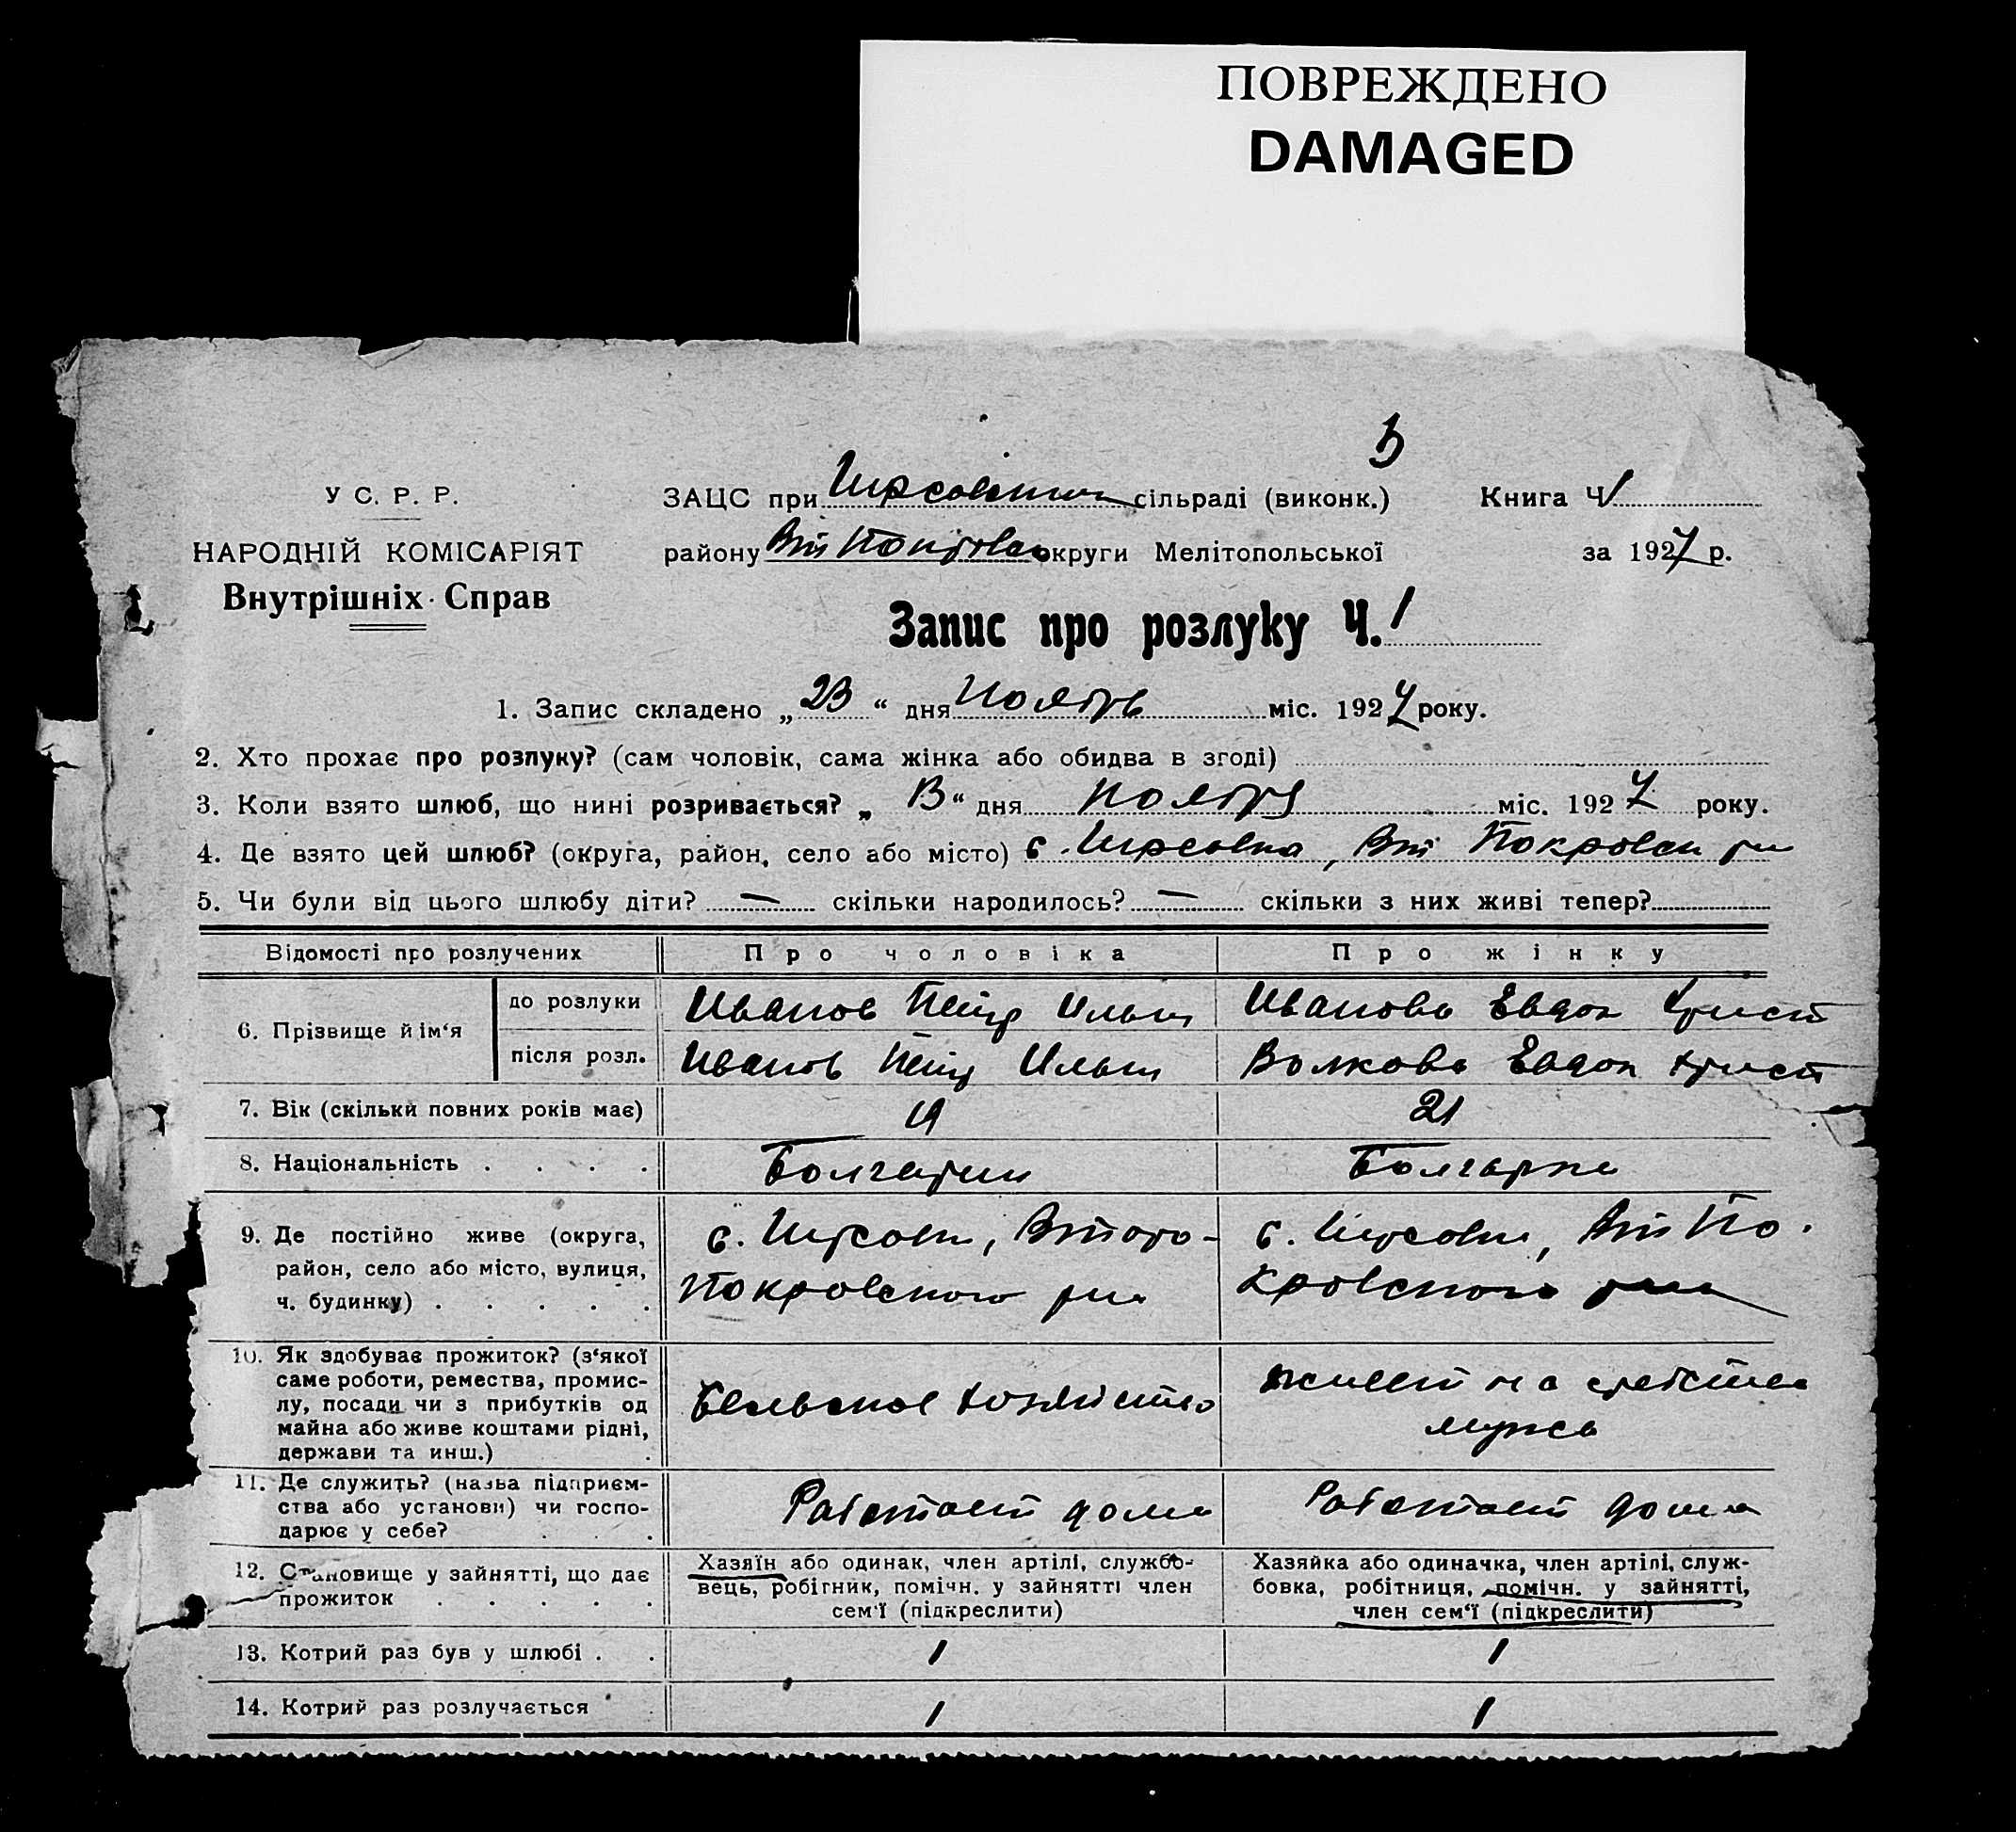 ПОВРЕЖДЕНО
DAMAGED
У С. Р. Р.
НАРОДНІЙ КОМІСАРІЯТ
Внутрішніх Справ
ЗАЦС при сільраді (виконк.)
Книга Ч 1
району Вт Покровск округи Мелітопольської
за 1927 р.
Запис про розлуку Ч. 1
1. Запис складено „ 23 “ дня Ноябрь міс. 1927 року.
2. Хто прохає про розлуку? (сам чоловік, сама жінка або обидва в згоді)
3. Коли взято шлюб, що нині розривається? „ “ дня Ноября міс. 1927 року.
4. Де взято цей шлюб? (округа, район, село або місто) с. Инзовка, Вт Покровск р-н
5. Чи були від цього шлюбу діти? — скільки народилось? — скільки з них живі тепер?
Відомості про розлучених
Про чоловіка
Про жінку
6. Прізвище й ім‘я
до розлуки
Иванов Петр Ильич
Иванова Евдок Христ
після розл.
Иванов Петр Ильич
Волкова Евдок Христ
7. Вік (скільки повних років має)
19
21
8. Національність . . . .
Болгарин
Болгарка
9. Де постійно живе (округа, район, село або місто, вулиця, ч. будинку) . . . . .
с. Второ-
Покровского р-на
с. Вт По-
кровского р-на
10. Як здобуває прожиток? (з‘якої саме роботи, ремества, промислу, посади чи з прибутків од майна або живе коштами рідні, держави та инш.)
Сельское хозяйство
живет на средства
мужа
11. Де служить? (назва підприємства або установи) чи господарює у себе? . . .
Работает дома
Работает дома
12. Становище у зайнятті, що дає прожиток . . . . .
Хазяїн або одинак, член артілі, службовець, робітник, помічн. у зайнятті член сем‘ї (підкреслити)
Хазяйка або одиначка, член артілі, службовка, робітниця, помічн. у зайнятті, член сем‘ї (підкреслити)
13. Котрий раз був у шлюбі . .
1
1
14. Котрий раз розлучається
1
1